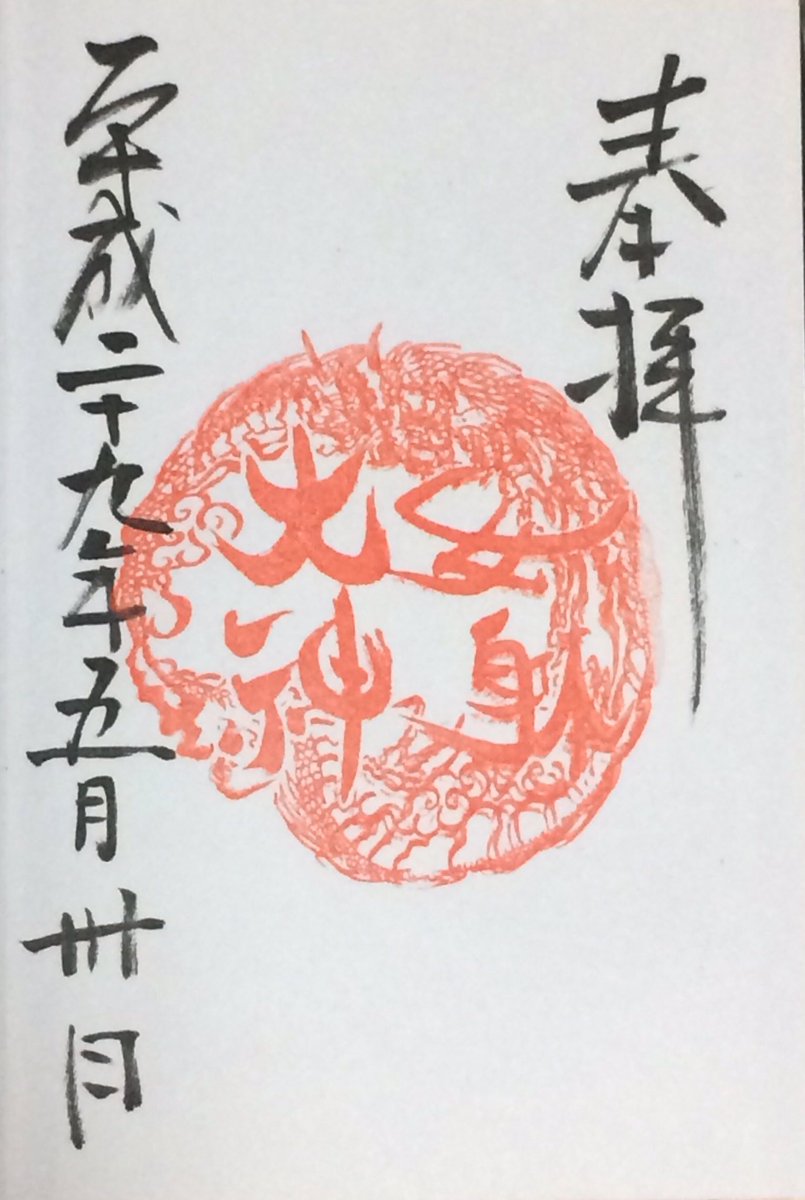 奉拝
女躰
大神
平成二十九年五月卅日